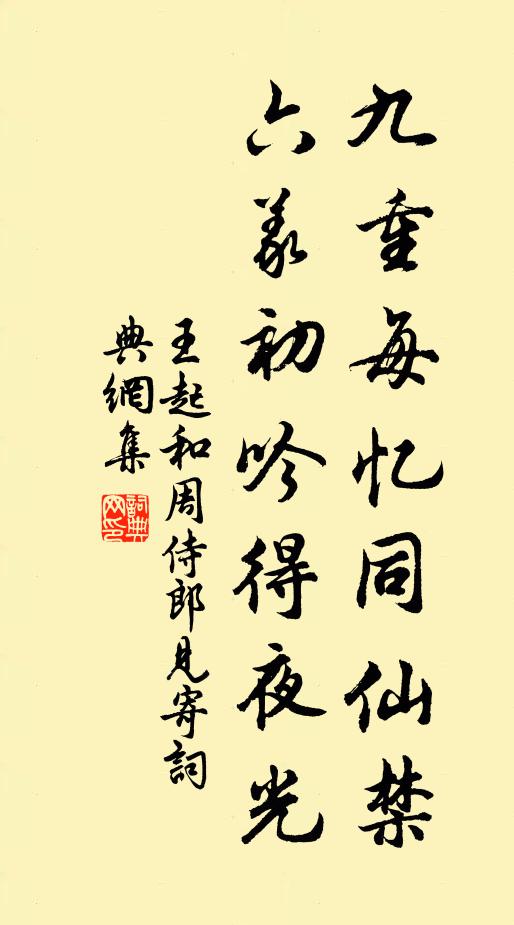 九重每忆同仙禁
六义初吟得夜光
王起和周侍郎見寄詞
典網集
詞典
网印